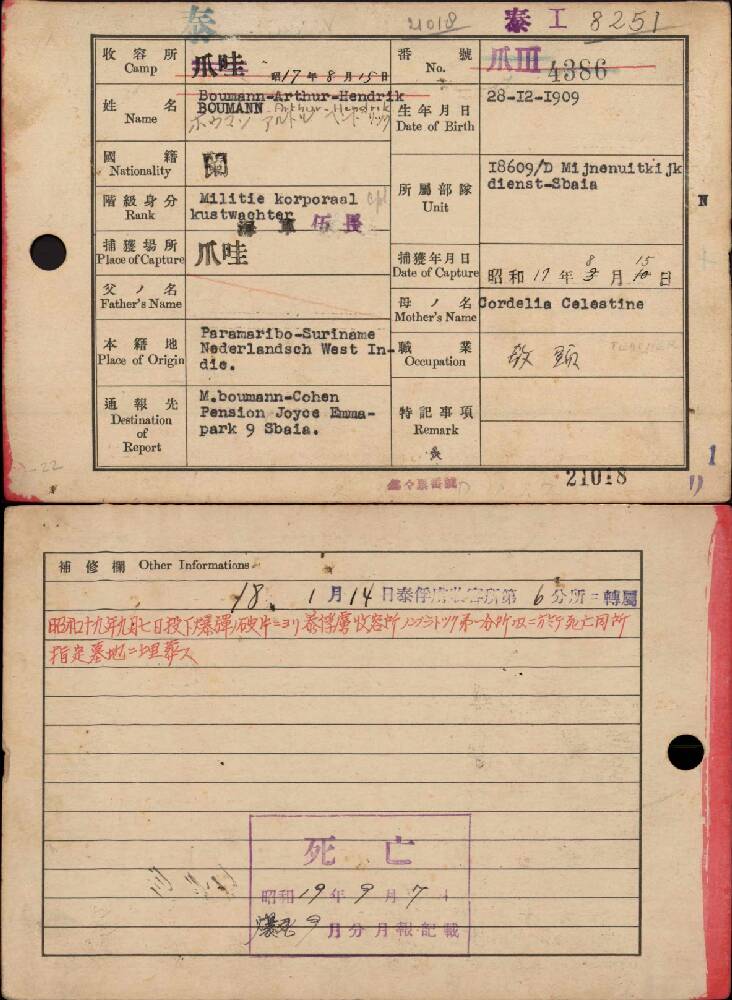 泰
21018
泰 工 8251
收容所 Camp
爪哇
昭17年8月15日
番號 No.
爪III 4386
姓名 Name
Boumann-Arthur-Hendrik
BOUMANN Arthur-Hendrik
生年月日 Date of Birth
28-12-1909
國籍 Nationality
蘭
所屬部隊 Unit
18609/D Mijnenuitkijk
dienst-Sbaia
階級身分 Rank
Militie korporaal cpl
kustwachter
海軍伍長
N
捕獲場所 Place of Capture
爪哇
捕獲年月日 Date of Capture
8 15
昭和17年3月10日
父ノ名 Father's Name
母ノ名 Mother's Name
Cordelia Celestine
本籍地 Place of Origin
Paramaribo-Suriname
Nederlandsch West In-
die.
職業 Occupation
TEACHER
通報先 Destination of Report
M.boumann-Cohen
Pension Joyce Emma-
park 9 Sbaia.
特記事項 Remark
-22
21018
1
補修欄 Other Informations
18. 1月14日泰俘虜收容所第6分所ニ轉屬
昭和十九年九月七日投下爆彈ノ破片ニヨリ泰俘虜收容所ノンプラドック第一分所
ニ於テ死亡同所
指定墓地ニ埋葬ス
死亡
昭和19年9月7日
爆死 9月分月報記載